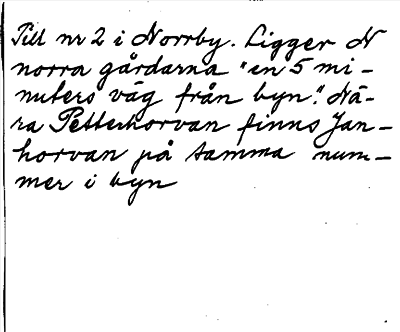 Till nr 2 i Norrby. Ligger N
norra gårdarna "en 5 mi-
nuters väg från byn". Nä-
ra Petterhorvan finns Jan-
horvan på samma num-
mer i byn